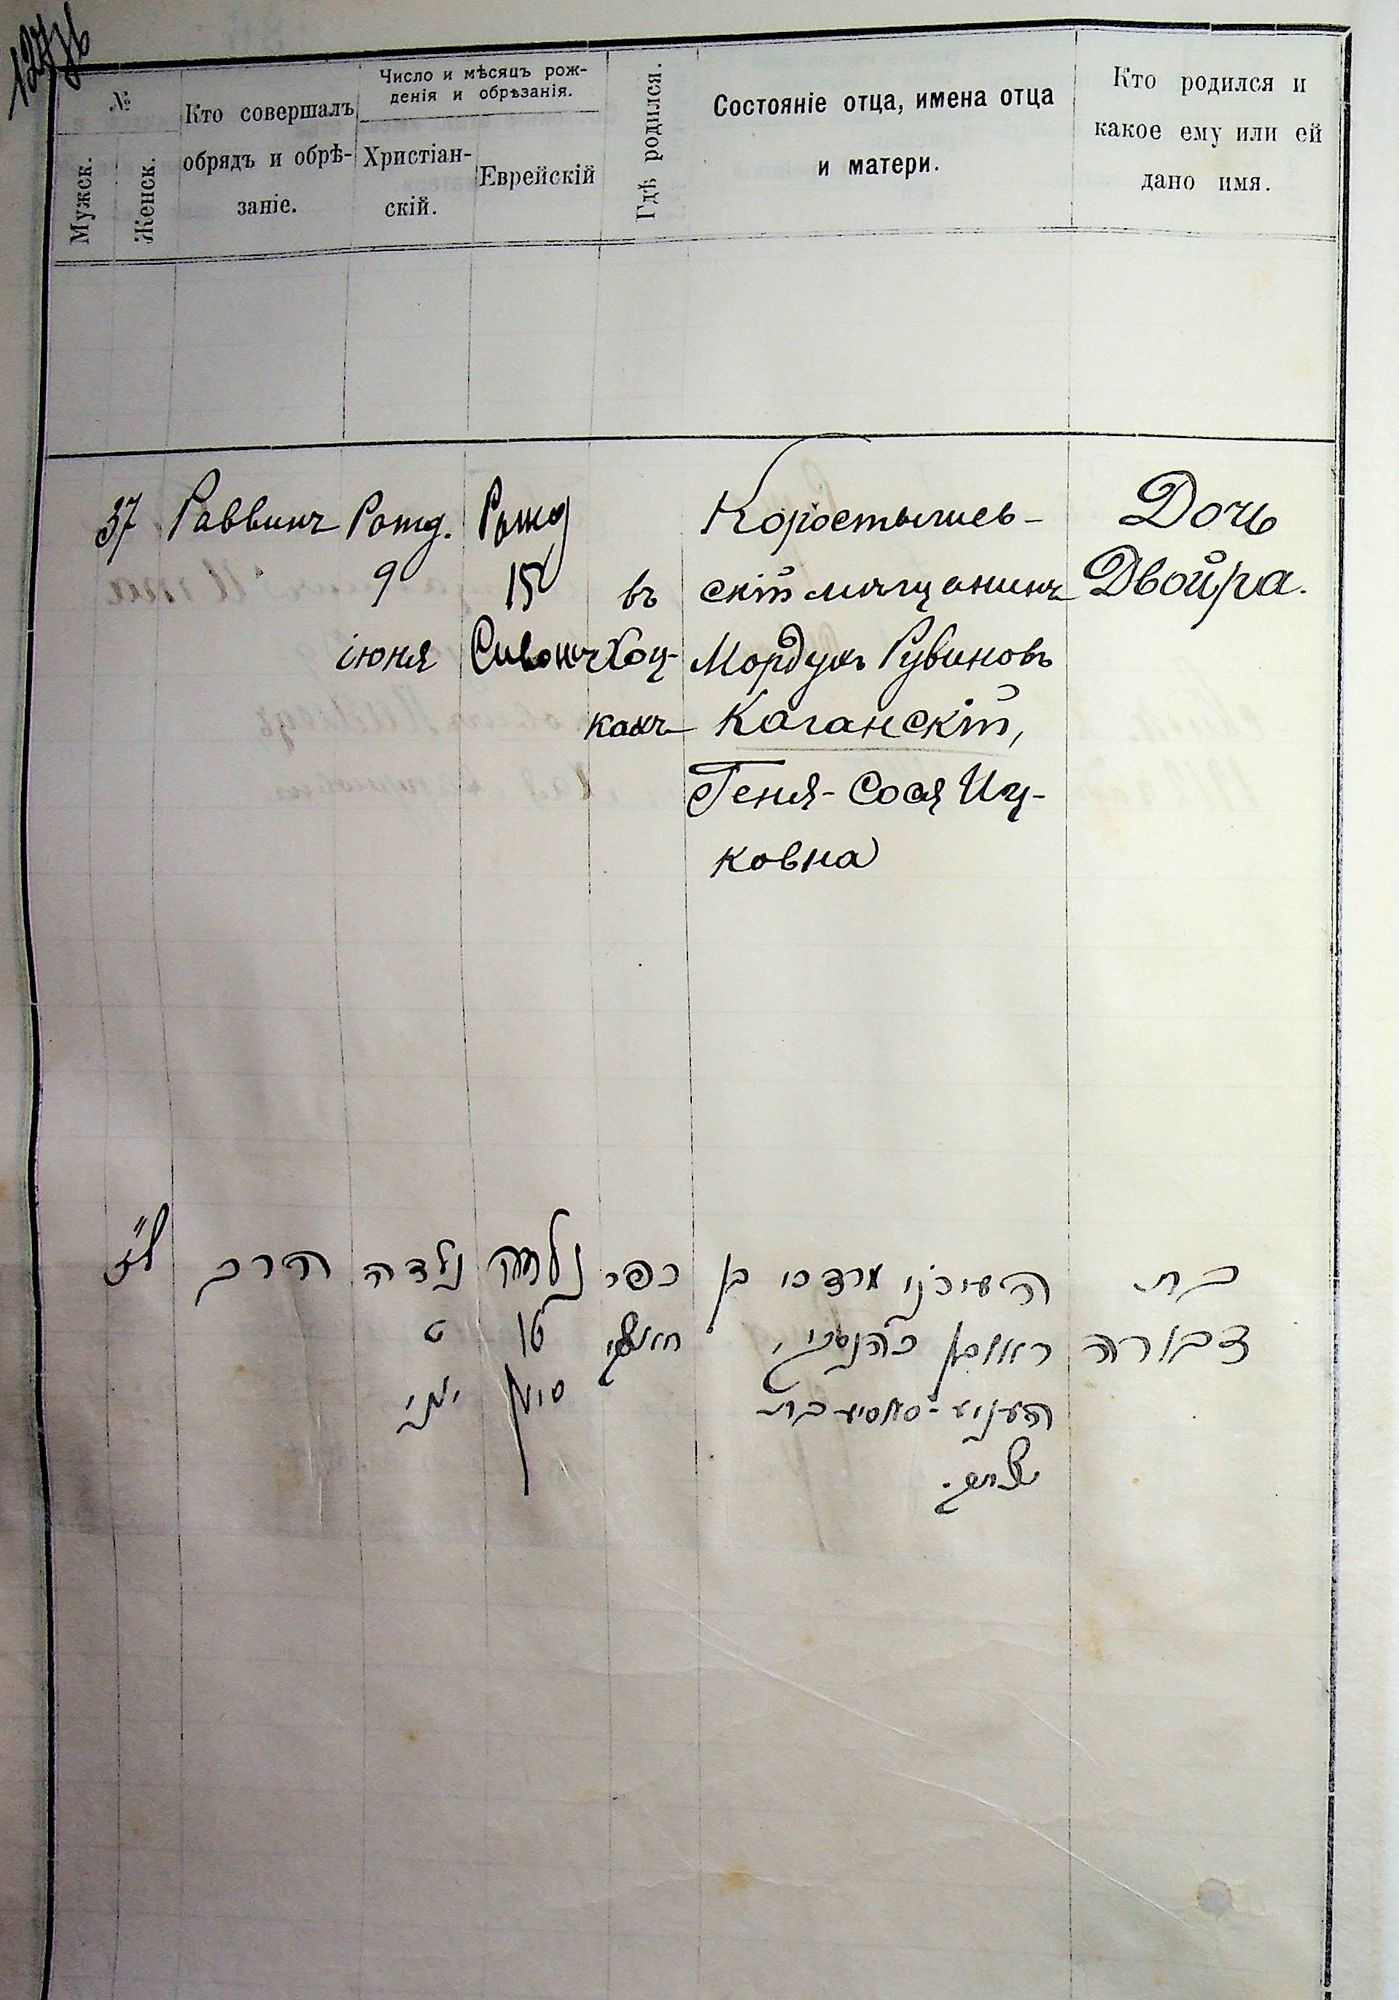 №
Мужск.
Женск.
Кто совершалъ
обрядъ и обрѣ-
заніе.
Число и мѣсяцъ рож-
денія и обрѣзанія.
Христіан-
скій.
Еврейскій
Гдѣ родился.
Состояніе отца, имена отца
и матери.
Кто родился и
какое ему или ей
дано имя.
37
Раввинъ
Рожд.
9
іюня
Рожд
15
въ
Коростышев-
скій мѣщанинъ
Мордухъ Рувиновъ
Каганскій,
Геня-Сося Иц-
ковна
Дочь
Двойра.
ל"ז
הרב
נולדה
ט
יוני
נולדה
טו
סיון
כפר
העירוני מרדכי בן
ראובן כהנסקי,
בת
דבורה